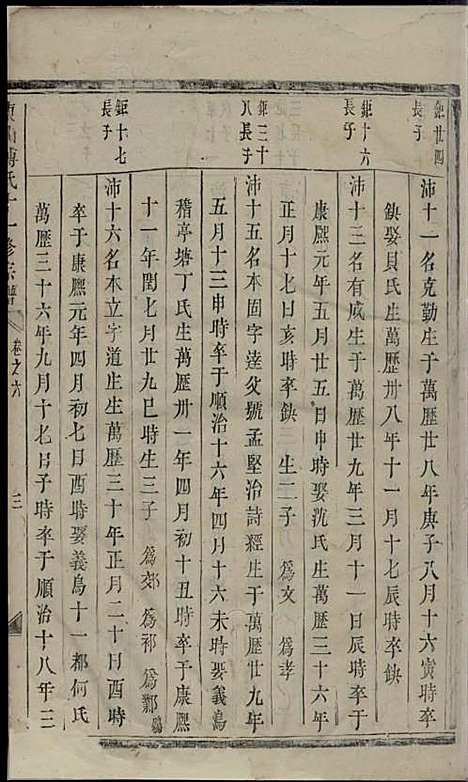 鉅廿四長子
沛十一名克勤生于萬歷廿八年庚子八月十六寅時卒
缺娶貝氏生萬歷卅八年十一月十七辰時卒缺
鉅十六長子
沛十三名有成生于萬歷廿九年三月十一日辰時卒于
康熙元年五月廿五日申時娶沈氏生萬歷三十六年
正月十七日亥時卒缺 生二子 為文 為孝
鉅三十八長子
沛十五名本固字達父號孟堅治詩經生于萬歷廿九年
五月十三申時卒于順治十六年四月十六未時娶義烏
稽亭塘丁氏生萬歷卅一年四月初十丑時卒于康熙
十一年閏七月廿九巳時生三子 為郊 為祁 為酆
鉅十七長子
沛十六名本立字道生生萬歷三十年正月二十日酉時
卒于康熙元年四月初七日酉時娶義烏十一都何氏
萬歷三十六年九月十七日子時卒于順治十八年三
傅氏十一修宗譜 卷之六 三